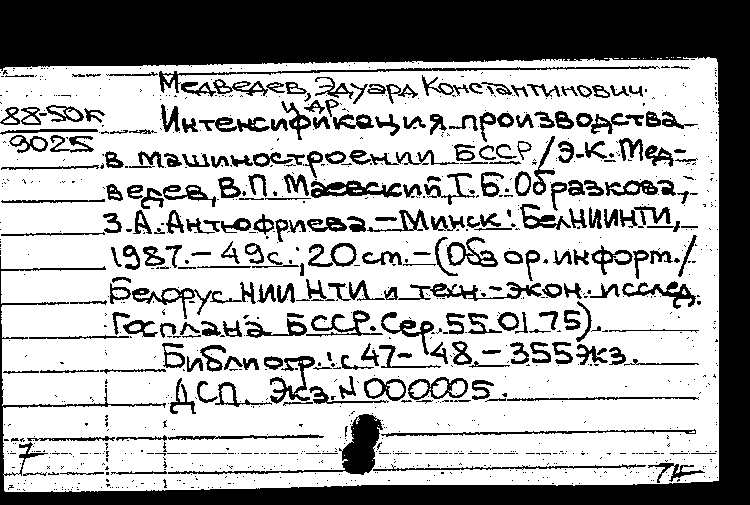 Медведев, Эдуард Константинович
и др.
88-50К
9025
Интенсификация производства
в машиностроении БССР / Э.К. Мед-
ведев, В.П. Маевский, Т.Б. Образкова,
З.А. Антюфриева. - Минск: БелНИИНТИ,
1987. - 49 с.; 20 см. - (Обзор. информ. /
Белорус. НИИ НТИ и техн.-экон. исслед.
Госплана БССР. Сер. 55.01.75).
Библиогр.: с. 47-48. - 355 экз.
ДСП. Экз. N 000005.
7